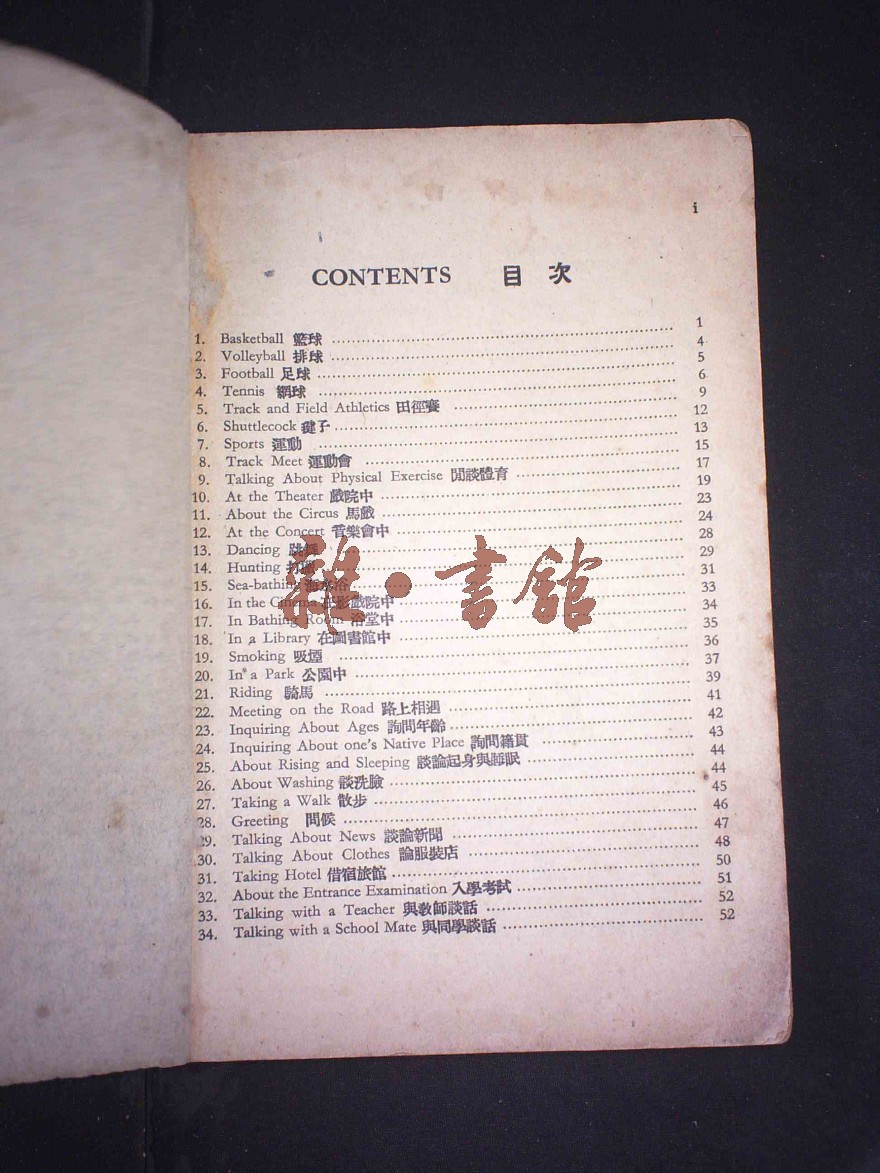 i
CONTENTS 目次
1. Basketball 籃球 1
2. Volleyball 排球 4
3. Football 足球 5
4. Tennis 網球 6
5. Track and Field Athletics 田徑賽 9
6. Shuttlecock 毽子 12
7. Sports 運動 13
8. Track Meet 運動會 15
9. Talking About Physical Exercise 閒談體育 17
10. At the Theater 戲院中 19
11. About the Circus 馬戲 23
12. At the Concert 音樂會中 24
13. Dancing 跳舞 28
14. Hunting 29
15. Sea-bathing 海水浴 31
16. In the Cinema 在影戲院中 33
17. In Bathing Room 浴堂中 34
18. In a Library 在圖書館中 35
19. Smoking 吸煙 36
20. In a Park 公園中 37
21. Riding 騎馬 39
22. Meeting on the Road 路上相遇 41
23. Inquiring About Ages 詢問年齡 42
24. Inquiring About one's Native Place 詢問籍貫 43
25. About Rising and Sleeping 談論起身與睡眠 44
26. About Washing 談洗臉 44
27. Taking a Walk 散步 45
28. Greeting 問候 46
29. Talking About News 談論新聞 47
30. Talking About Clothes 論服裝店 48
31. Taking Hotel 借宿旅館 50
32. About the Entrance Examination 入學考試 51
33. Talking with a Teacher 與教師談話 52
34. Talking with a School Mate 與同學談話 52
雜·書館